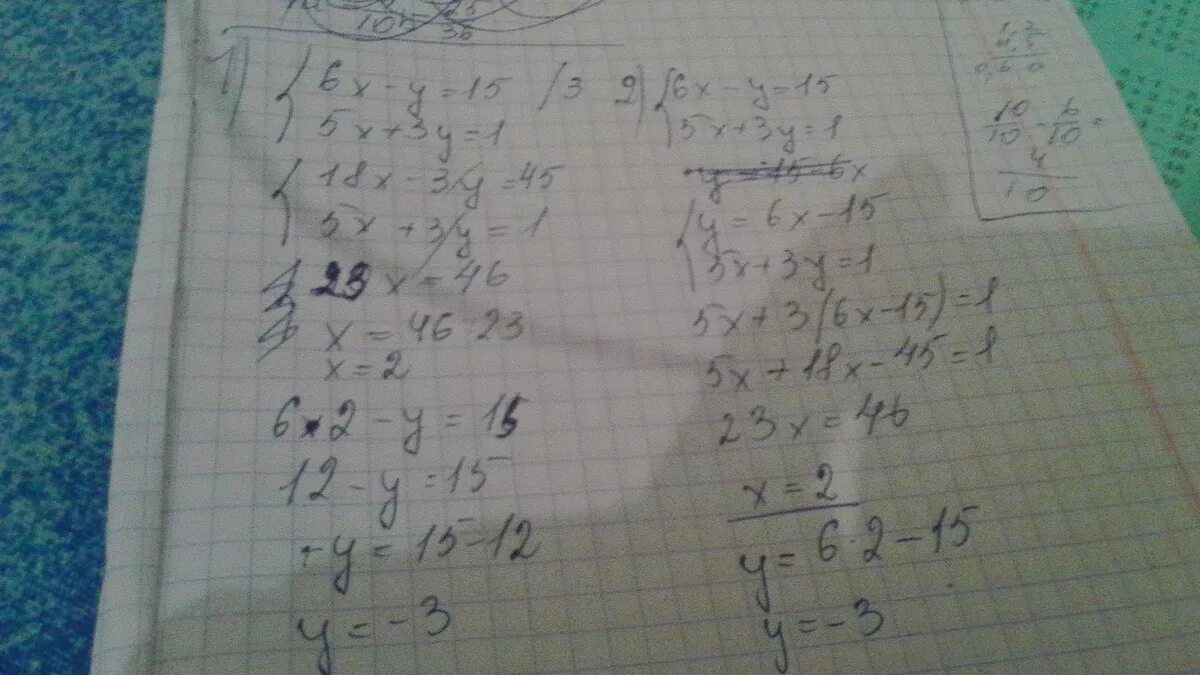 1) { 6x - y = 15 /3
5x + 3y = 1
{ 18x - 3y = 45
5x + 3y = 1
23x = 46
x = 46 23
x = 2
6 · 2 - y = 15
12 - y = 15
-y = 15 - 12
y = -3
2) { 6x - y = 15
5x + 3y = 1
y = 15 - 6x
{ y = 6x - 15
5x + 3y = 1
5x + 3(6x - 15) = 1
5x + 18x - 45 = 1
23x = 46
x = 2
y = 6 · 2 - 15
y = -3
10/10 - 6/10 =
4/10